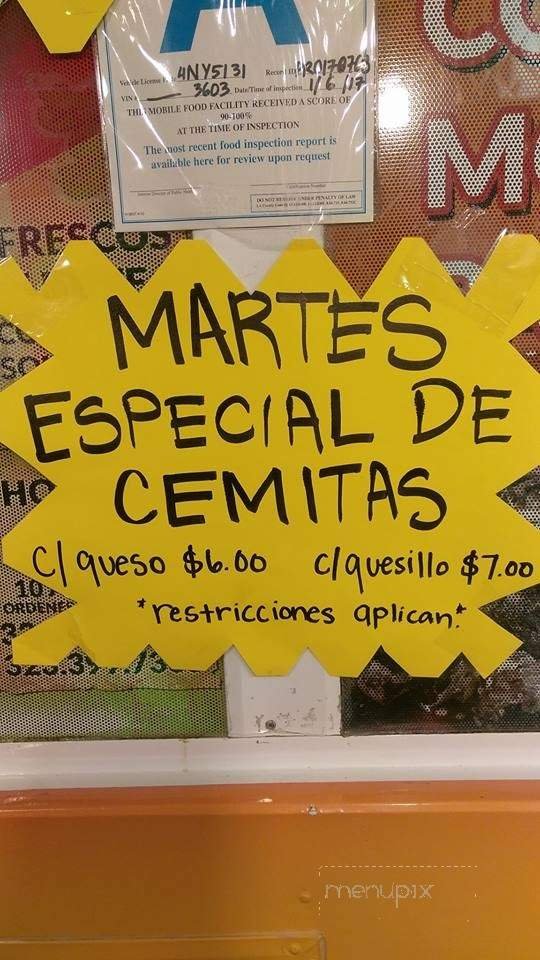 A
Vehicle License 4NY5131
VIN # 3603 Date/Time of inspection 1/6/17
THIS MOBILE FOOD FACILITY RECEIVED A SCORE OF
90-100%
AT THE TIME OF INSPECTION
The most recent food inspection report is
available here for review upon request
DO NOT REMOVE UNDER PENALTY OF LAW
FRESCOS
MARTES
ESPECIAL DE
CEMITAS
c/queso $6.00 c/quesillo $7.00
*restricciones aplican.*
menupix